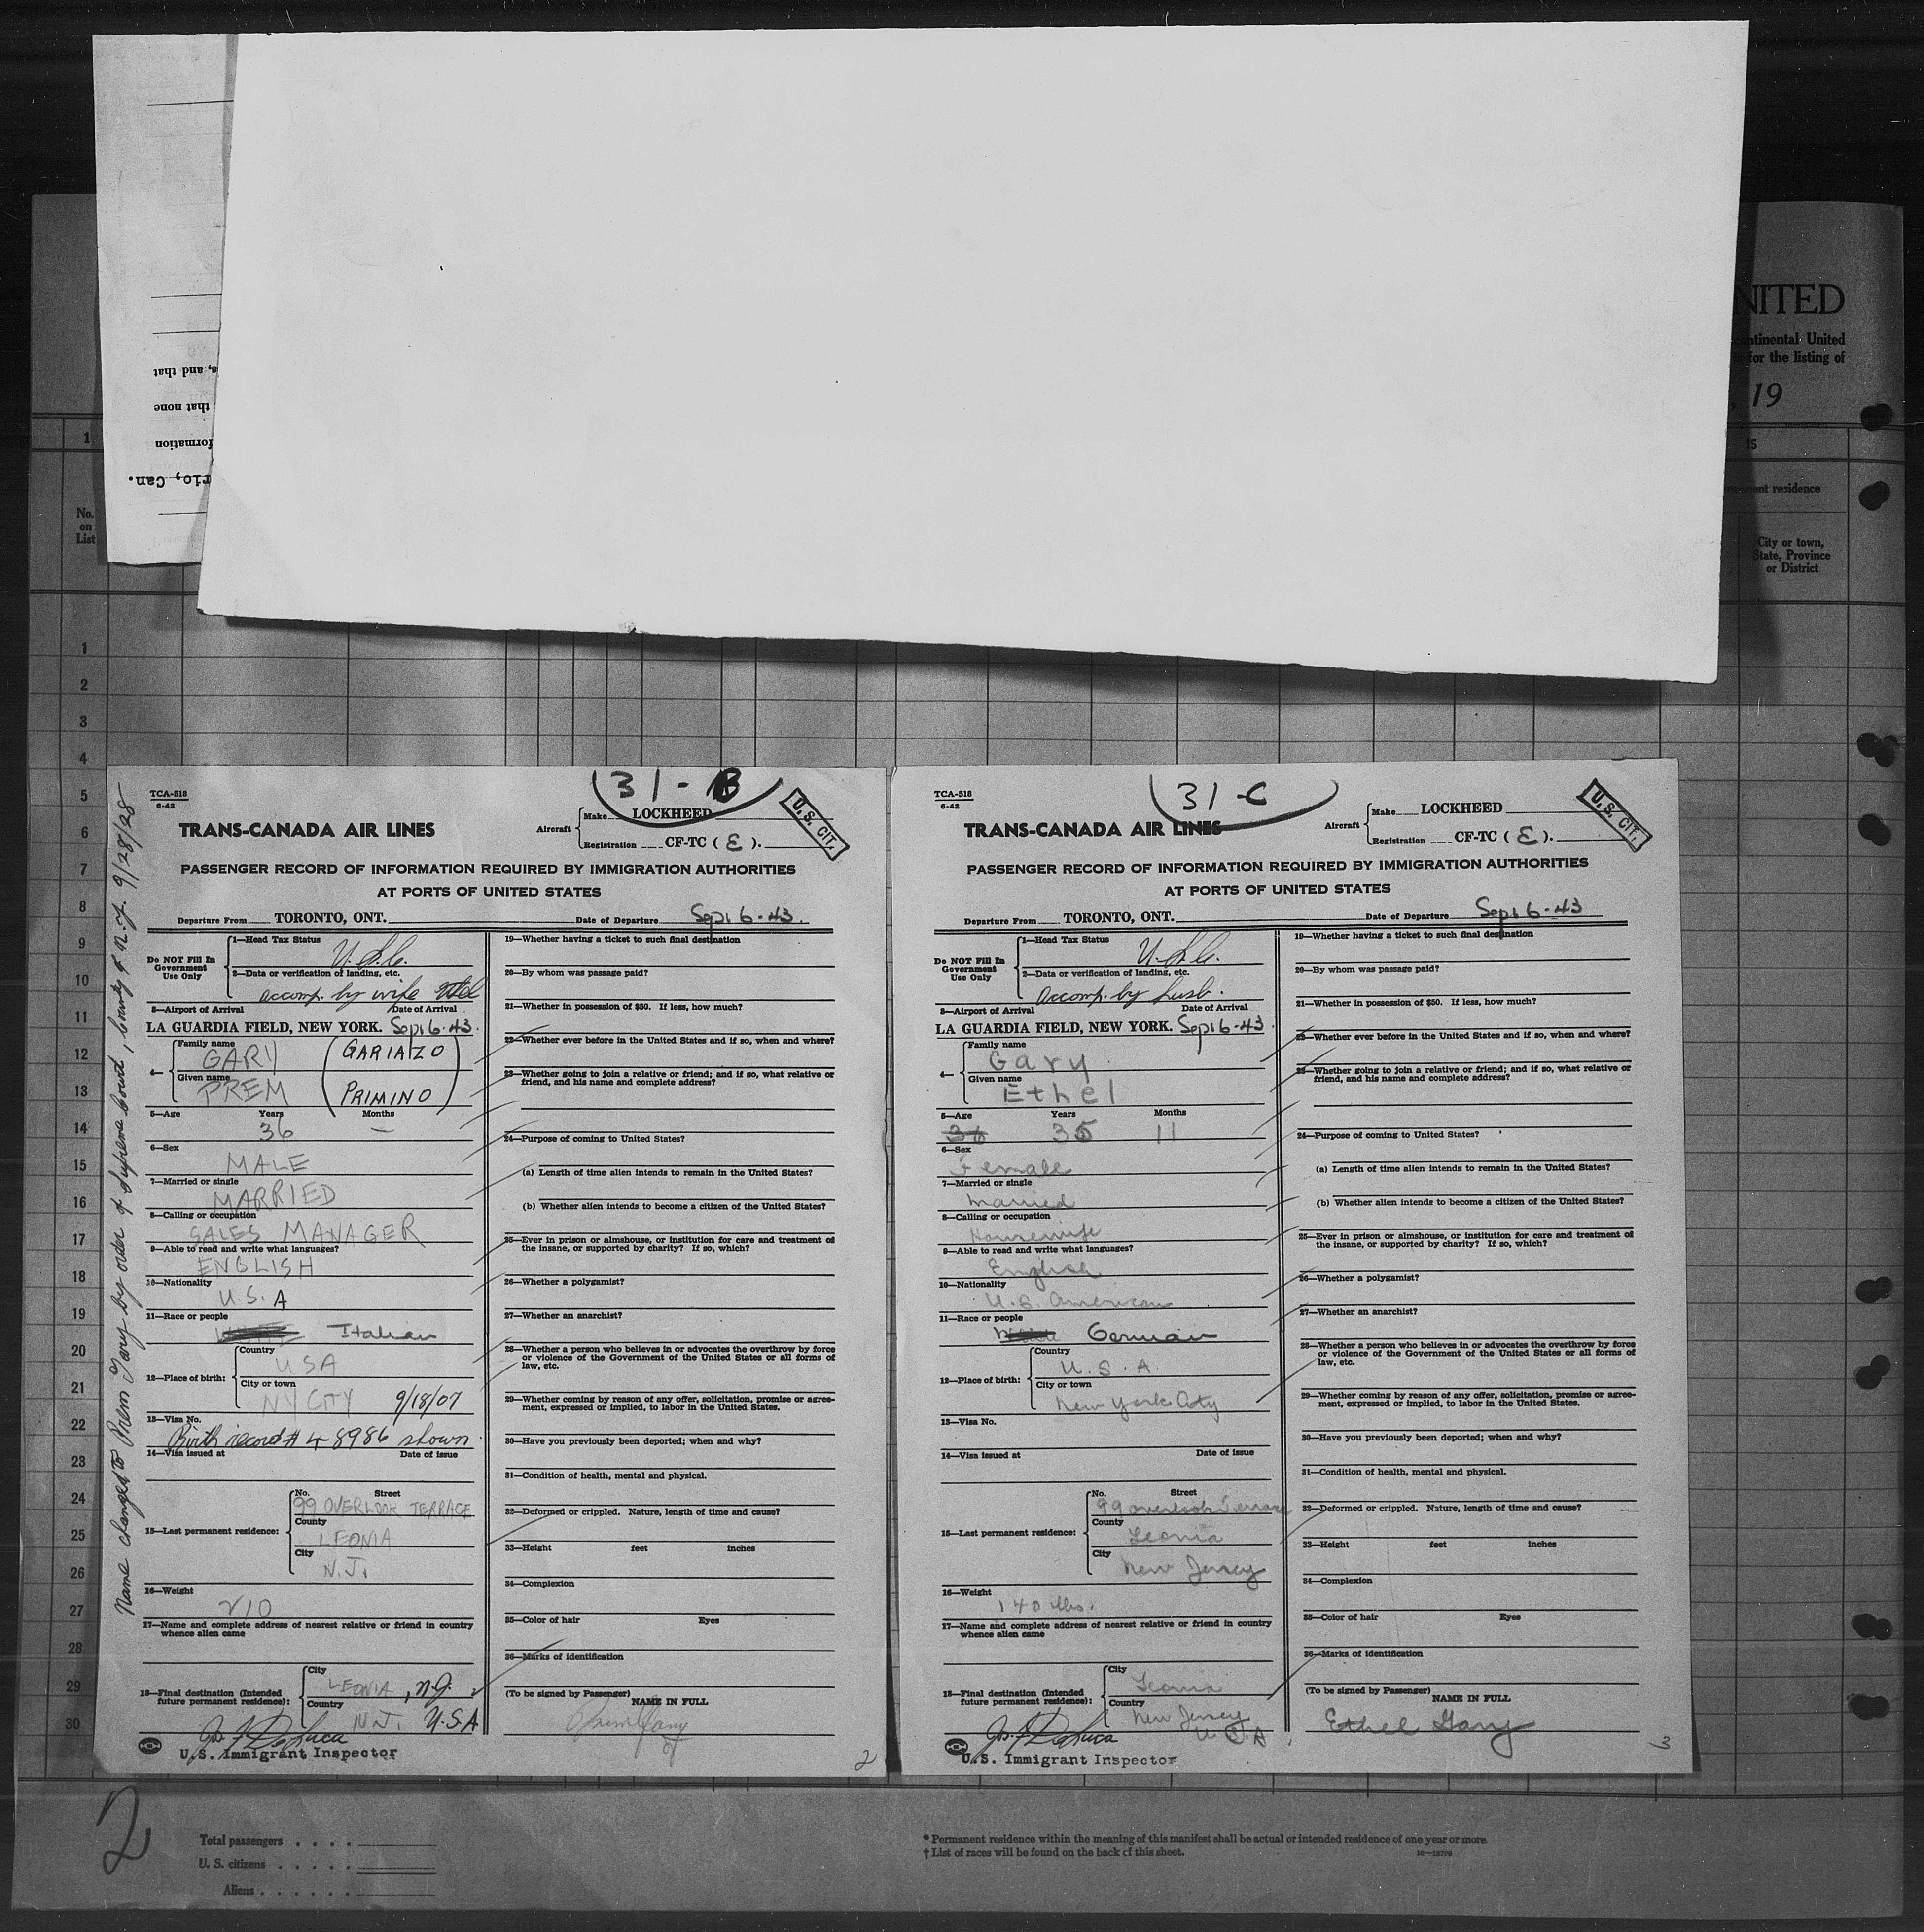 s, and that
that none
formation
rio, Can.
NITED
continental United
for the listing of
, 19
1
15
residence
No.
on
List
City or town,
State, Province
or District
1
2
3
4
5
6
7
8
9
10
11
12
13
14
15
16
17
18
19
20
21
22
23
24
25
26
27
28
29
30
Name changed to Prem Gary by order of Supreme Court, County of N.Y. 9/28/28
31-B
TCA-518
6-42
U.S. CIT.
TRANS-CANADA AIR LINES
Aircraft
Make LOCKHEED
Registration CF-TC ( E ).
PASSENGER RECORD OF INFORMATION REQUIRED BY IMMIGRATION AUTHORITIES
AT PORTS OF UNITED STATES
Departure From TORONTO, ONT. Date of Departure Sept 6-43.
Do NOT Fill In
Government
Use Only
1—Head Tax Status
U.S.C.
2—Data or verification of landing, etc.
accomp. by wife Ethel
3—Airport of Arrival Date of Arrival
LA GUARDIA FIELD, NEW YORK. Sept 6-43.
4—
Family name
GARY (GARIAZO
Given name
PREM PRIMINO)
5—Age Years Months
36 —
6—Sex
MALE
7—Married or single
MARRIED
8—Calling or occupation
SALES MANAGER
9—Able to read and write what languages?
ENGLISH
10—Nationality
U.S.A
11—Race or people
Italian
12—Place of birth:
Country
USA
City or town
NY CITY 9/18/07
13—Visa No.
Birth record # 48986 shown.
14—Visa issued at Date of issue
15—Last permanent residence:
No. Street
99 OVERLOOK TERRACE
County
LEONIA
City
N.J.
16—Weight
210
17—Name and complete address of nearest relative or friend in country
whence alien came
18—Final destination (Intended
future permanent residence):
City
LEONIA, N.J.
Country
N.J. U.S.A
Jos. F. DeLuca
U.S. Immigrant Inspector
19—Whether having a ticket to such final destination
20—By whom was passage paid?
21—Whether in possession of $50. If less, how much?
22—Whether ever before in the United States and if so, when and where?
23—Whether going to join a relative or friend; and if so, what relative or
friend, and his name and complete address?
24—Purpose of coming to United States?
(a) Length of time alien intends to remain in the United States?
(b) Whether alien intends to become a citizen of the United States?
25—Ever in prison or almshouse, or institution for care and treatment of
the insane, or supported by charity? If so, which?
26—Whether a polygamist?
27—Whether an anarchist?
28—Whether a person who believes in or advocates the overthrow by force
or violence of the Government of the United States or all forms of
law, etc.
29—Whether coming by reason of any offer, solicitation, promise or agree-
ment, expressed or implied, to labor in the United States.
30—Have you previously been deported; when and why?
31—Condition of health, mental and physical.
32—Deformed or crippled. Nature, length of time and cause?
33—Height feet inches
34—Complexion
35—Color of hair Eyes
36—Marks of identification
(To be signed by Passenger)
NAME IN FULL
Prem Gary
2
31-C
TCA-518
6-42
U.S. CIT.
TRANS-CANADA AIR LINES
Aircraft
Make LOCKHEED
Registration CF-TC ( E ).
PASSENGER RECORD OF INFORMATION REQUIRED BY IMMIGRATION AUTHORITIES
AT PORTS OF UNITED STATES
Departure From TORONTO, ONT. Date of Departure Sept 6-43
Do NOT Fill In
Government
Use Only
1—Head Tax Status
U.S.C.
2—Data or verification of landing, etc.
accomp. by husb.
3—Airport of Arrival Date of Arrival
LA GUARDIA FIELD, NEW YORK. Sept 6-43.
4—
Family name
Gary
Given name
Ethel
5—Age Years Months
36 35 11
6—Sex
Female
7—Married or single
Married
8—Calling or occupation
Housewife
9—Able to read and write what languages?
English
10—Nationality
U.S. American
11—Race or people
German
12—Place of birth:
Country
U.S.A.
City or town
New York City
13—Visa No.
14—Visa issued at Date of issue
15—Last permanent residence:
No. Street
99 Overlook Terrace
County
Leonia
City
New Jersey
16—Weight
140 lbs.
17—Name and complete address of nearest relative or friend in country
whence alien came
18—Final destination (Intended
future permanent residence):
City
Leonia
Country
New Jersey
U.S.A.
Jos. F. DeLuca
U.S. Immigrant Inspector
19—Whether having a ticket to such final destination
20—By whom was passage paid?
21—Whether in possession of $50. If less, how much?
22—Whether ever before in the United States and if so, when and where?
23—Whether going to join a relative or friend; and if so, what relative or
friend, and his name and complete address?
24—Purpose of coming to United States?
(a) Length of time alien intends to remain in the United States?
(b) Whether alien intends to become a citizen of the United States?
25—Ever in prison or almshouse, or institution for care and treatment of
the insane, or supported by charity? If so, which?
26—Whether a polygamist?
27—Whether an anarchist?
28—Whether a person who believes in or advocates the overthrow by force
or violence of the Government of the United States or all forms of
law, etc.
29—Whether coming by reason of any offer, solicitation, promise or agree-
ment, expressed or implied, to labor in the United States.
30—Have you previously been deported; when and why?
31—Condition of health, mental and physical.
32—Deformed or crippled. Nature, length of time and cause?
33—Height feet inches
34—Complexion
35—Color of hair Eyes
36—Marks of identification
(To be signed by Passenger)
NAME IN FULL
Ethel Gary
3
2
Total passengers . . . .
U. S. citizens . . . . .
Aliens . . . . . .
* Permanent residence within the meaning of this manifest shall be actual or intended residence of one year or more.
† List of races will be found on the back of this sheet.